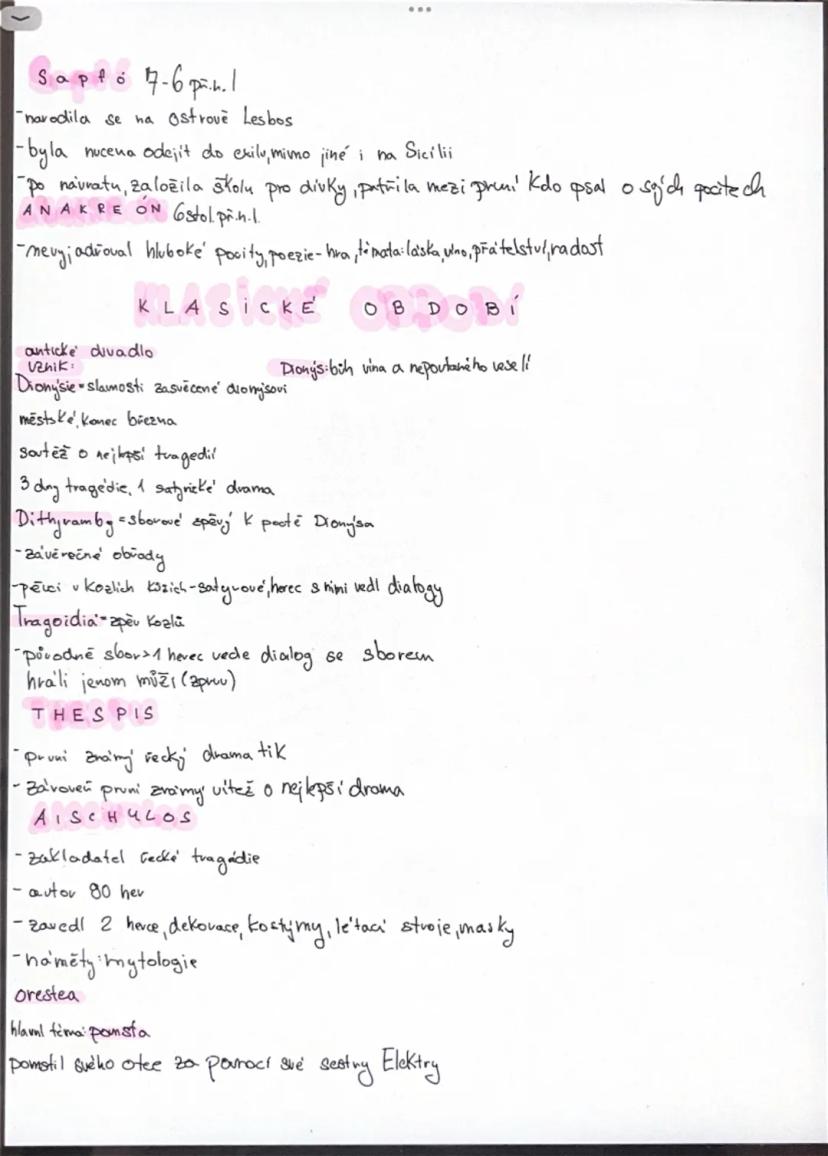 Sapfó 7-6 př.n.l
-narodila se na ostrově Lesbos
-byla nucena odejít do exilu, mimo jiné i na Sicílii
-po návratu, založila školu pro dívky, patřila mezi první kdo psal o svých pocitech
ANAKREÓN 6stol.př.n.l.
-nevyjadřoval hluboké pocity, poezie-hra, témata: láska, víno, přátelství, radost
KLASICKÉ OBDOBÍ
antické divadlo
vznik:
Dionýs: bůh vína a nepoutaného veselí
Dionýsie = slavnosti zasvěcené dionýsovi
městské, konec března
soutěž o nejlepší tragedii
3 dny tragédie, 1 satyrické drama
Dithyramby = sborové zpěvy k poctě Dionýsa
-závěrečné obřady
-pěvci v kozlích kůzích-satyrové, herec s nimi vedl dialogy
Tragoidia = zpěv kozlů
-původně sbor > 1 herec vede dialog se sborem
hráli jenom můži (zprvu)
THESPIS
-první známý řecký dramatik
-zároveň první známy vítěž o nejlepší drama
AISCHYLOS
-zakladatel řecké tragédie
-autor 90 her
-zavedl 2 herce, dekorace, kostýmy, létací stroje, masky
-náměty: mytologie
orestea
hlavní téma: pomsta
pomstil svého otce za pomoci své sestry Elektry